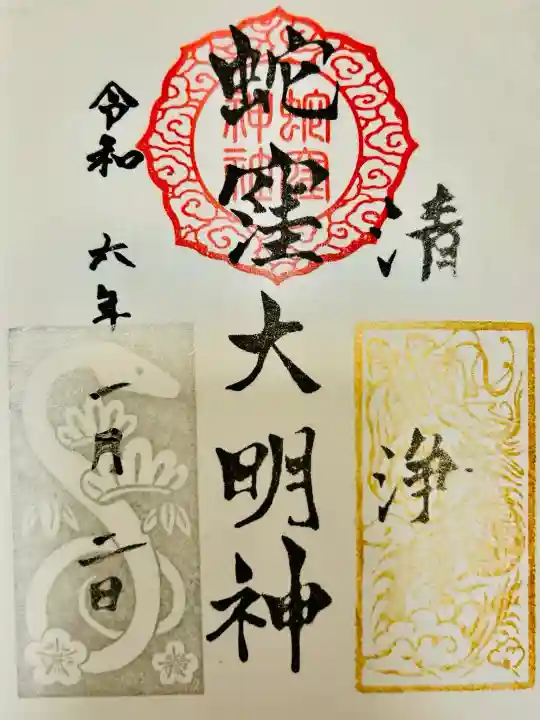 清浄
蛇窪大明神
令和六年一月二日
蛇窪
神社